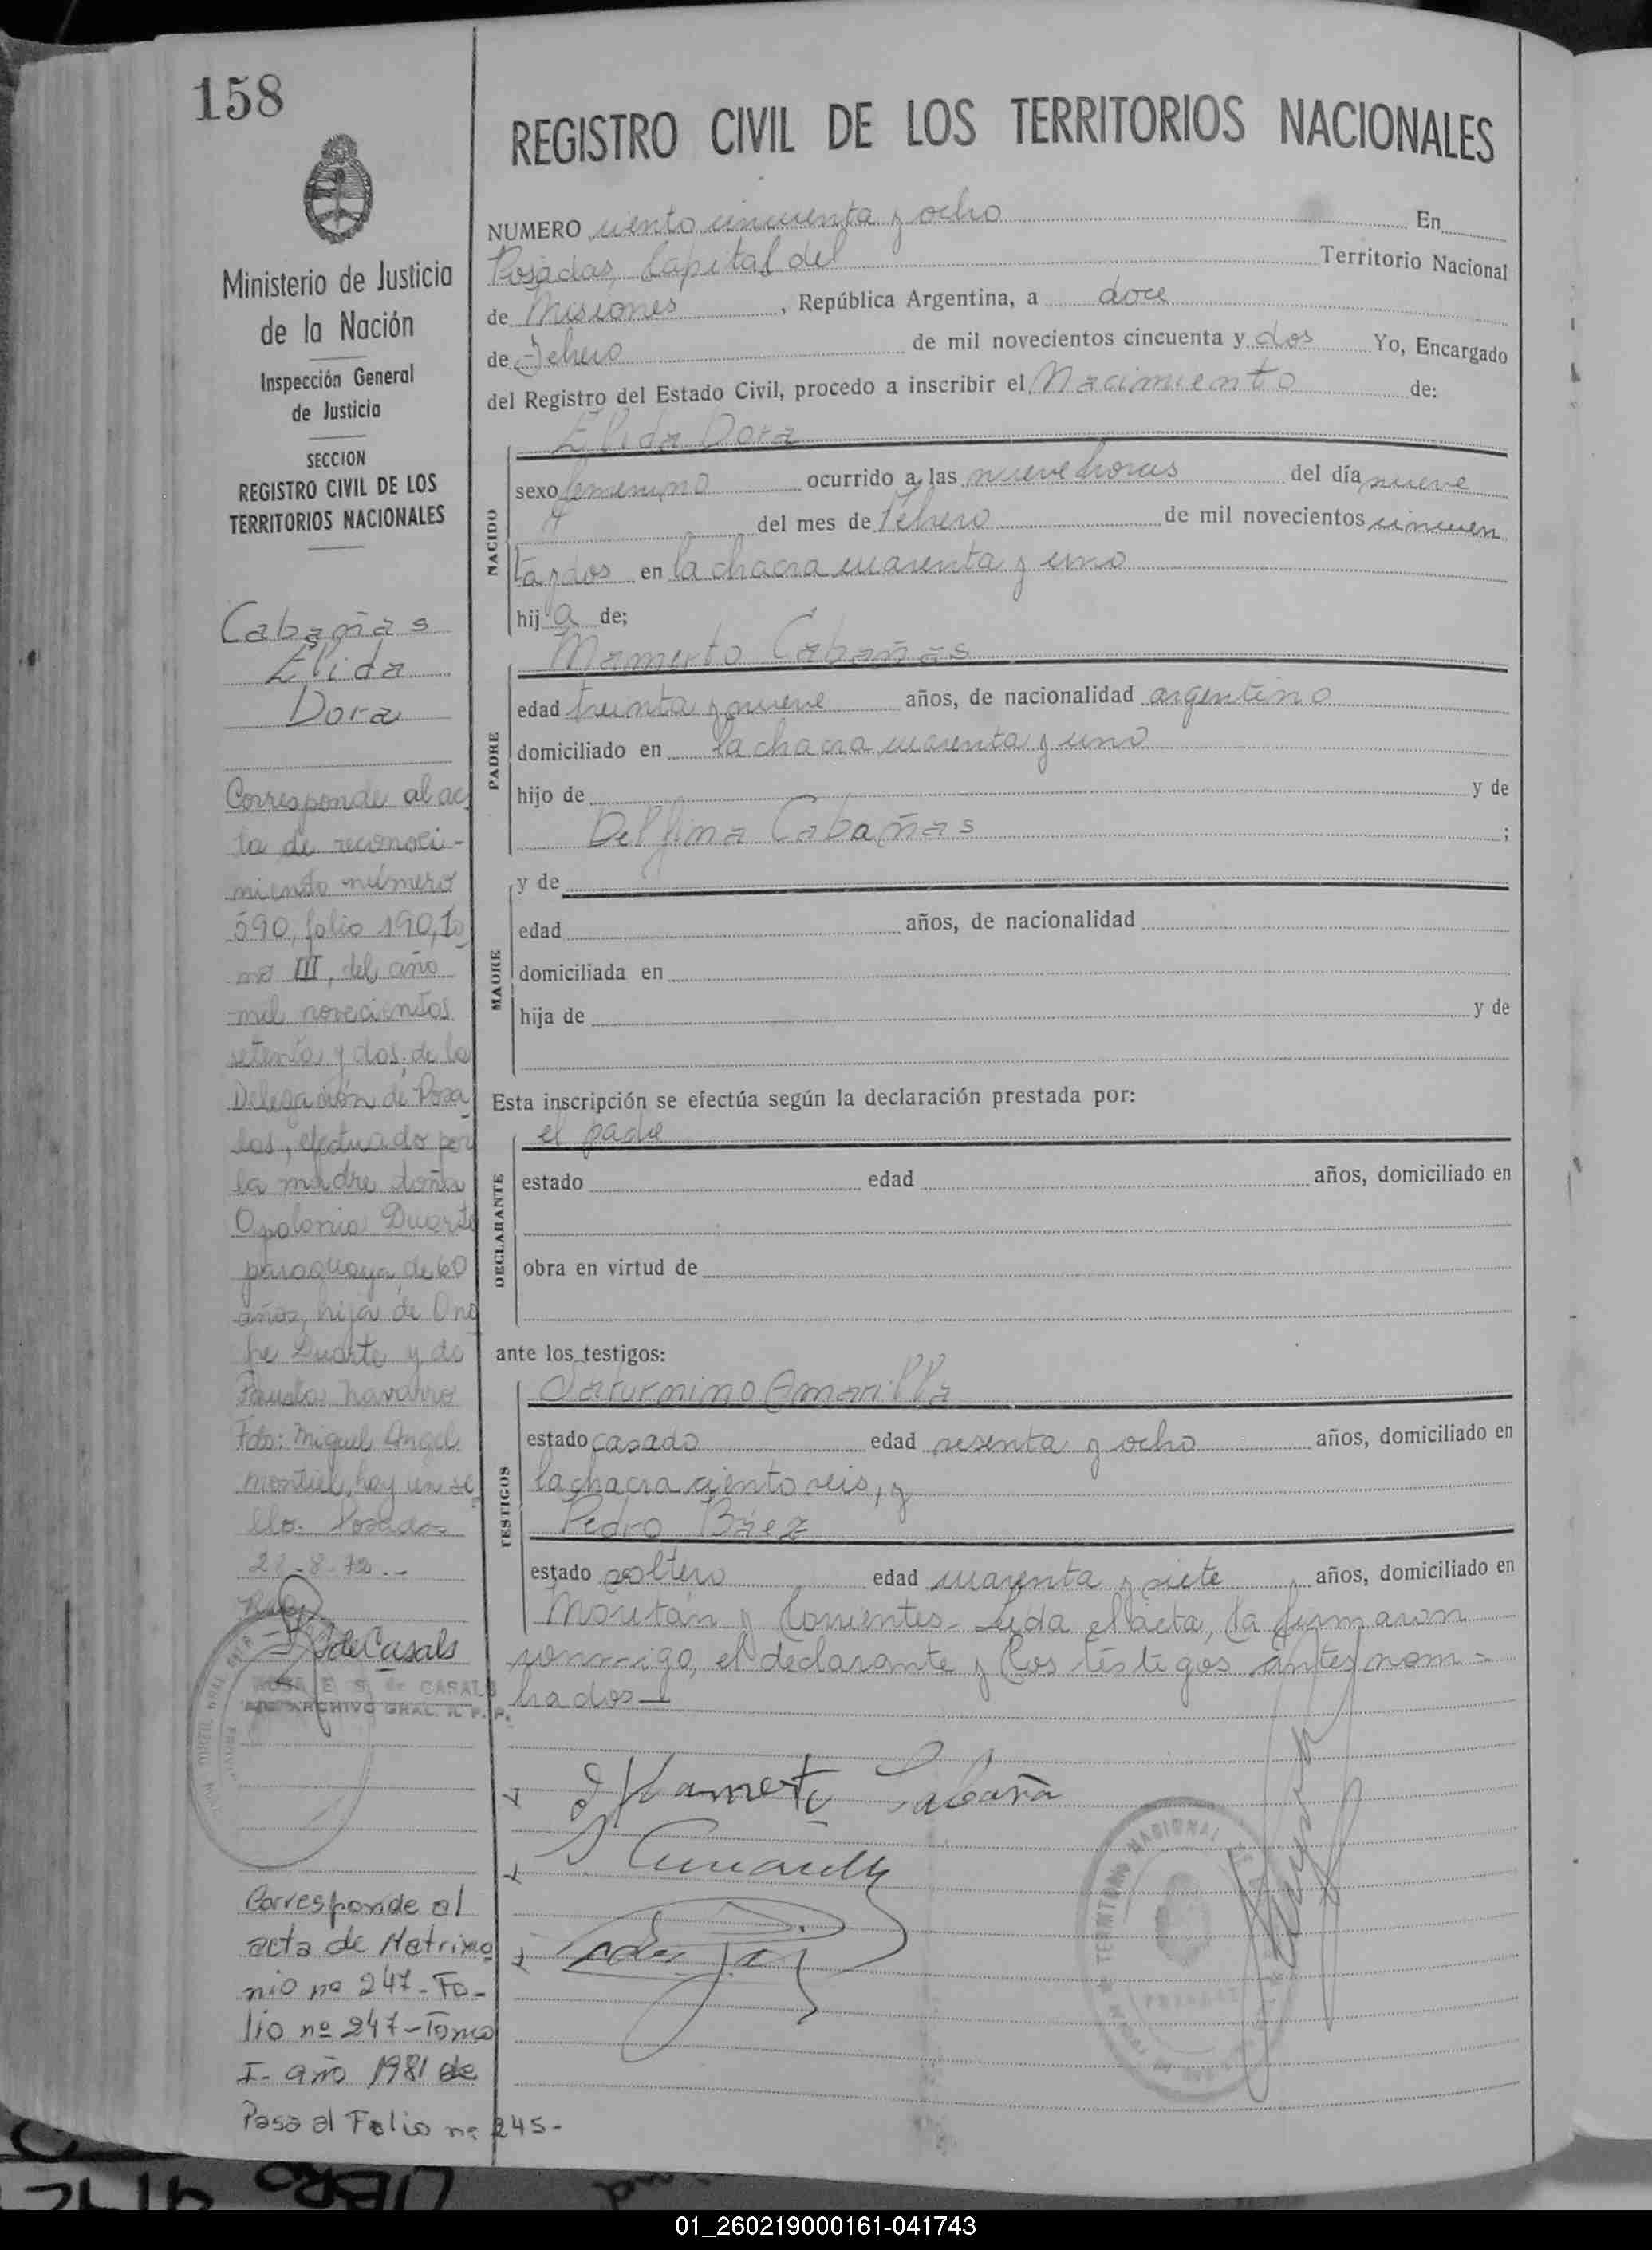 158
Ministerio de Justicia
de la Nación
Inspección General
de Justicia
SECCION
REGISTRO CIVIL DE LOS
TERRITORIOS NACIONALES
Cabañas
Elida
Dora
Corresponde al ac
ta de reconoci-
miento número
590, folio 190, To
mo III, del año
mil novecientos
setenta y dos, de la
Delegación de Posa
das, efectuado por
la madre doña
Apolonia Duarte
paraguaya, de 60
años, hija de Ono
fre Duarte y de
Fausta Navarro
Fdo: Miguel Angel
Montiel, hay un se
llo. Posadas
8-72.--
de Casals
ROSA E. S. de CASALS
ARCHIVO GRAL. R. P. P.
Corresponde al
acta de Matrimo
nio nº 247-Fo-
lio nº 247-Tomo
I- año 1981 de
Pasa al Folio nº 245-
REGISTRO CIVIL DE LOS TERRITORIOS NACIONALES
NUMERO ciento cincuenta y ocho En
Posadas, Capital del Territorio Nacional
de Misiones, República Argentina, a doce
de Febrero de mil novecientos cincuenta y dos Yo, Encargado
del Registro del Estado Civil, procedo a inscribir el Nacimiento de:
Elida Dora
NACIDO
sexo femenino ocurrido a las nueve horas del día nueve
del mes de Febrero de mil novecientos cincuen
ta y dos en la chacra cuarenta y uno
hija de;
Mamerto Cabañas
PADRE
edad treinta y nueve años, de nacionalidad argentino
domiciliado en la chacra cuarenta y uno
hijo de y de
Delfina Cabañas ;
y de
MADRE
edad años, de nacionalidad
domiciliada en
hija de y de
Esta inscripción se efectúa según la declaración prestada por:
el padre
DECLARANTE
estado edad años, domiciliado en
obra en virtud de
ante los testigos:
Saturnino Amarilla
TESTIGOS
estado casado edad sesenta y ocho años, domiciliado en
la chacra ciento seis, y
Pedro Báez
estado soltero edad cuarenta y siete años, domiciliado en
y Corrientes. Leída el acta, la firmaron
conmigo, el declarante y los testigos antes nom-
brados
Mamerto Cabaña
S Amarilla
TERRITORIO NACIONAL
POSADAS
LIBRO
01_260219000161-041743